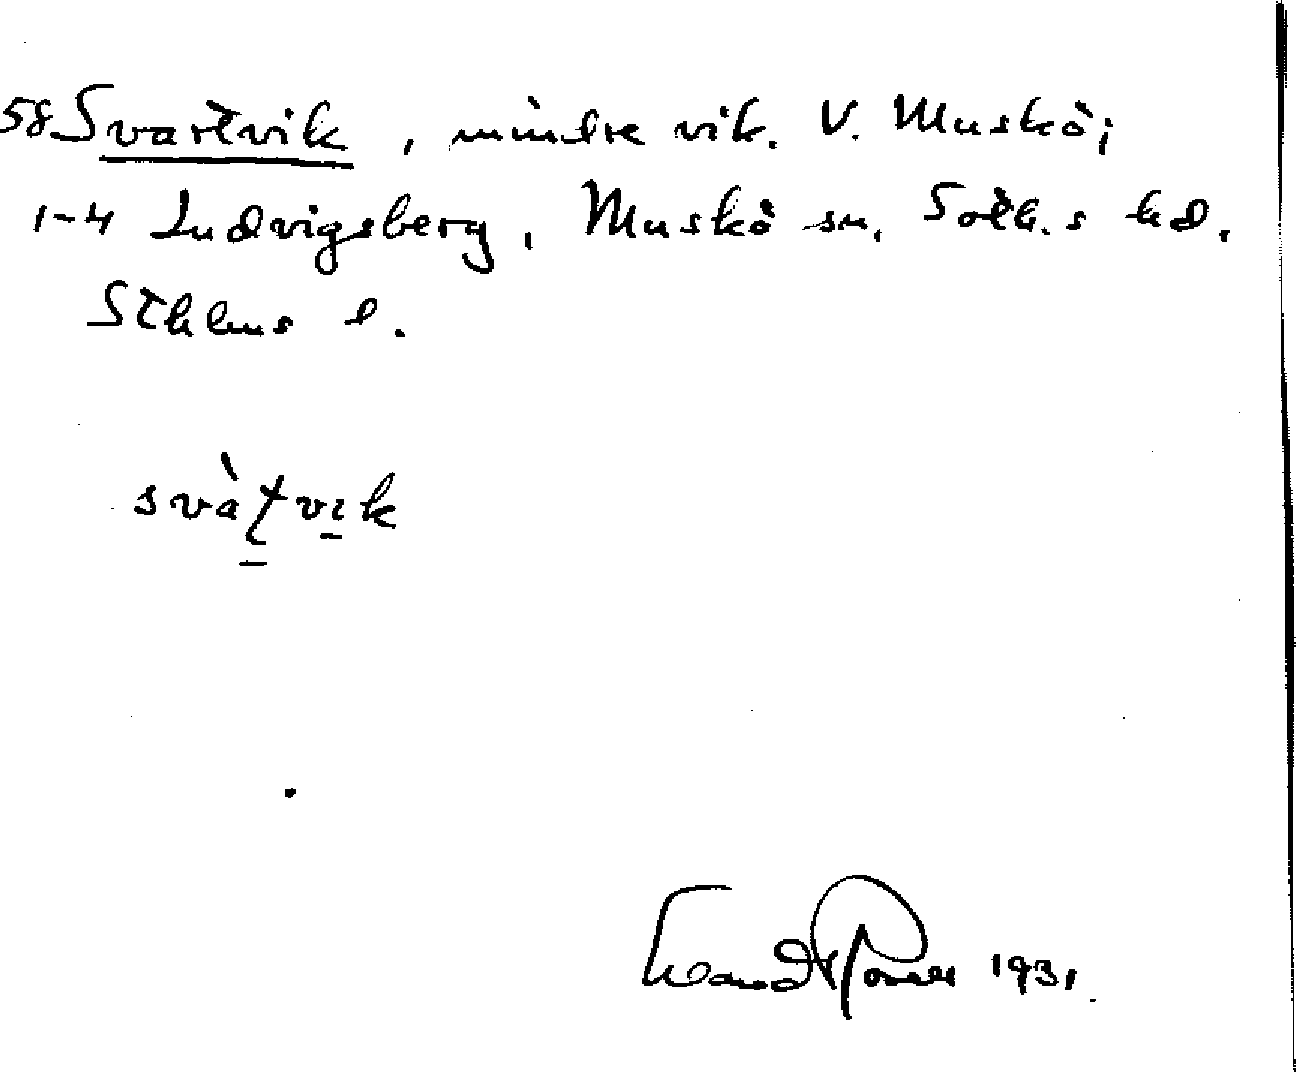 58 Svartvik, mindre vik. V. Muskö;
1-4 Ludvigsberg, Muskö sn, Soth.s hd.
Sthlms l.
svàʈvik
1931